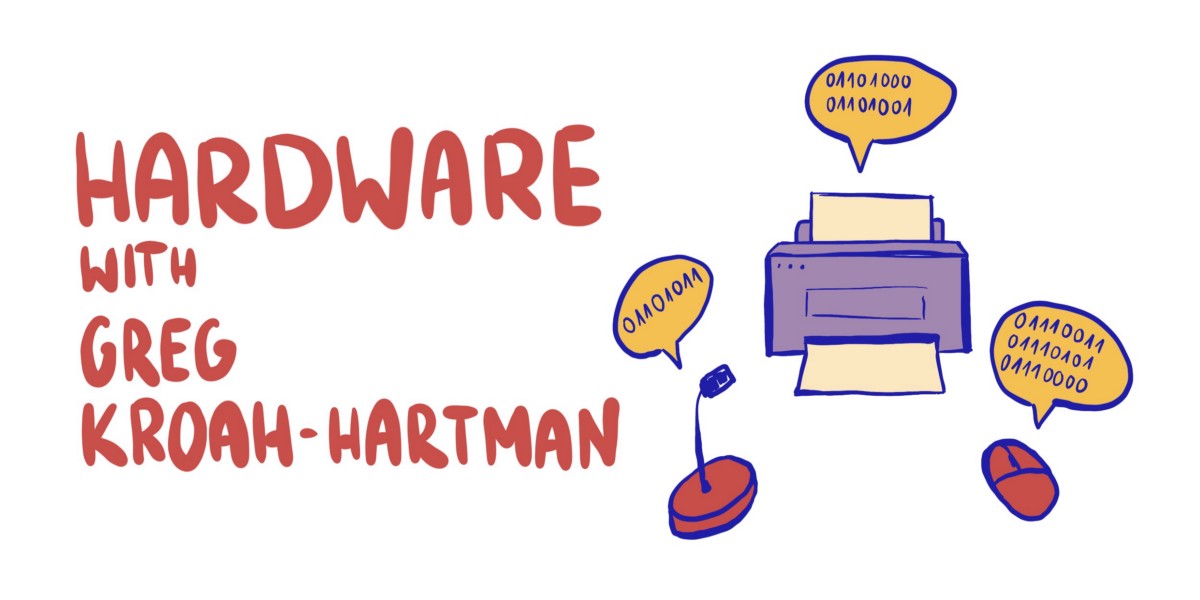 HARDWARE
WITH
GREG
KROAH-HARTMAN
01101000
01101001
01101011
01110011
01110101
01110000